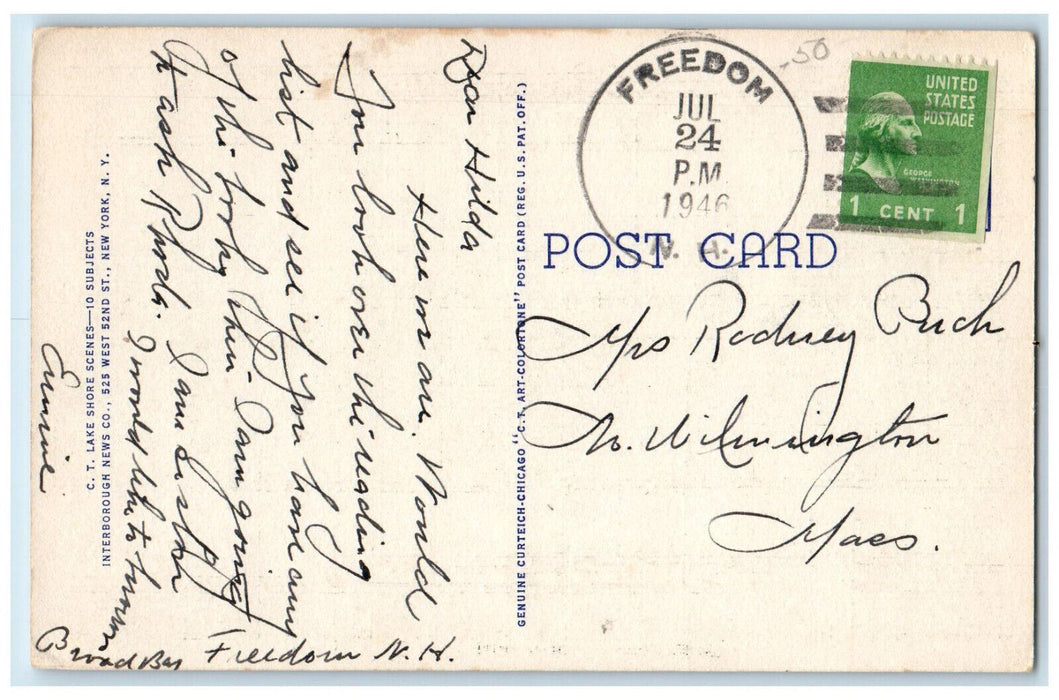 Dear Hilda
Here we are. Would
you look over the reading
list and see if you have any
of the books there. I am going
to ask Rhoda. I am
I would like to know
Broad Bay Freedom N. H.
C. T. LAKE SHORE SCENES—10 SUBJECTS
INTERBOROUGH NEWS CO., 525 WEST 52ND ST., NEW YORK, N. Y.
GENUINE CURTEICH-CHICAGO "C.T. ART-COLORTONE" POST CARD (REG. U.S. PAT. OFF.)
FREEDOM
JUL
24
P.M
1946
N. H.
-50
UNITED
STATES
POSTAGE
GEORGE
WASHINGTON
1 CENT 1
POST CARD
Mrs Rodney Buck
No. Wilmington
Mass.